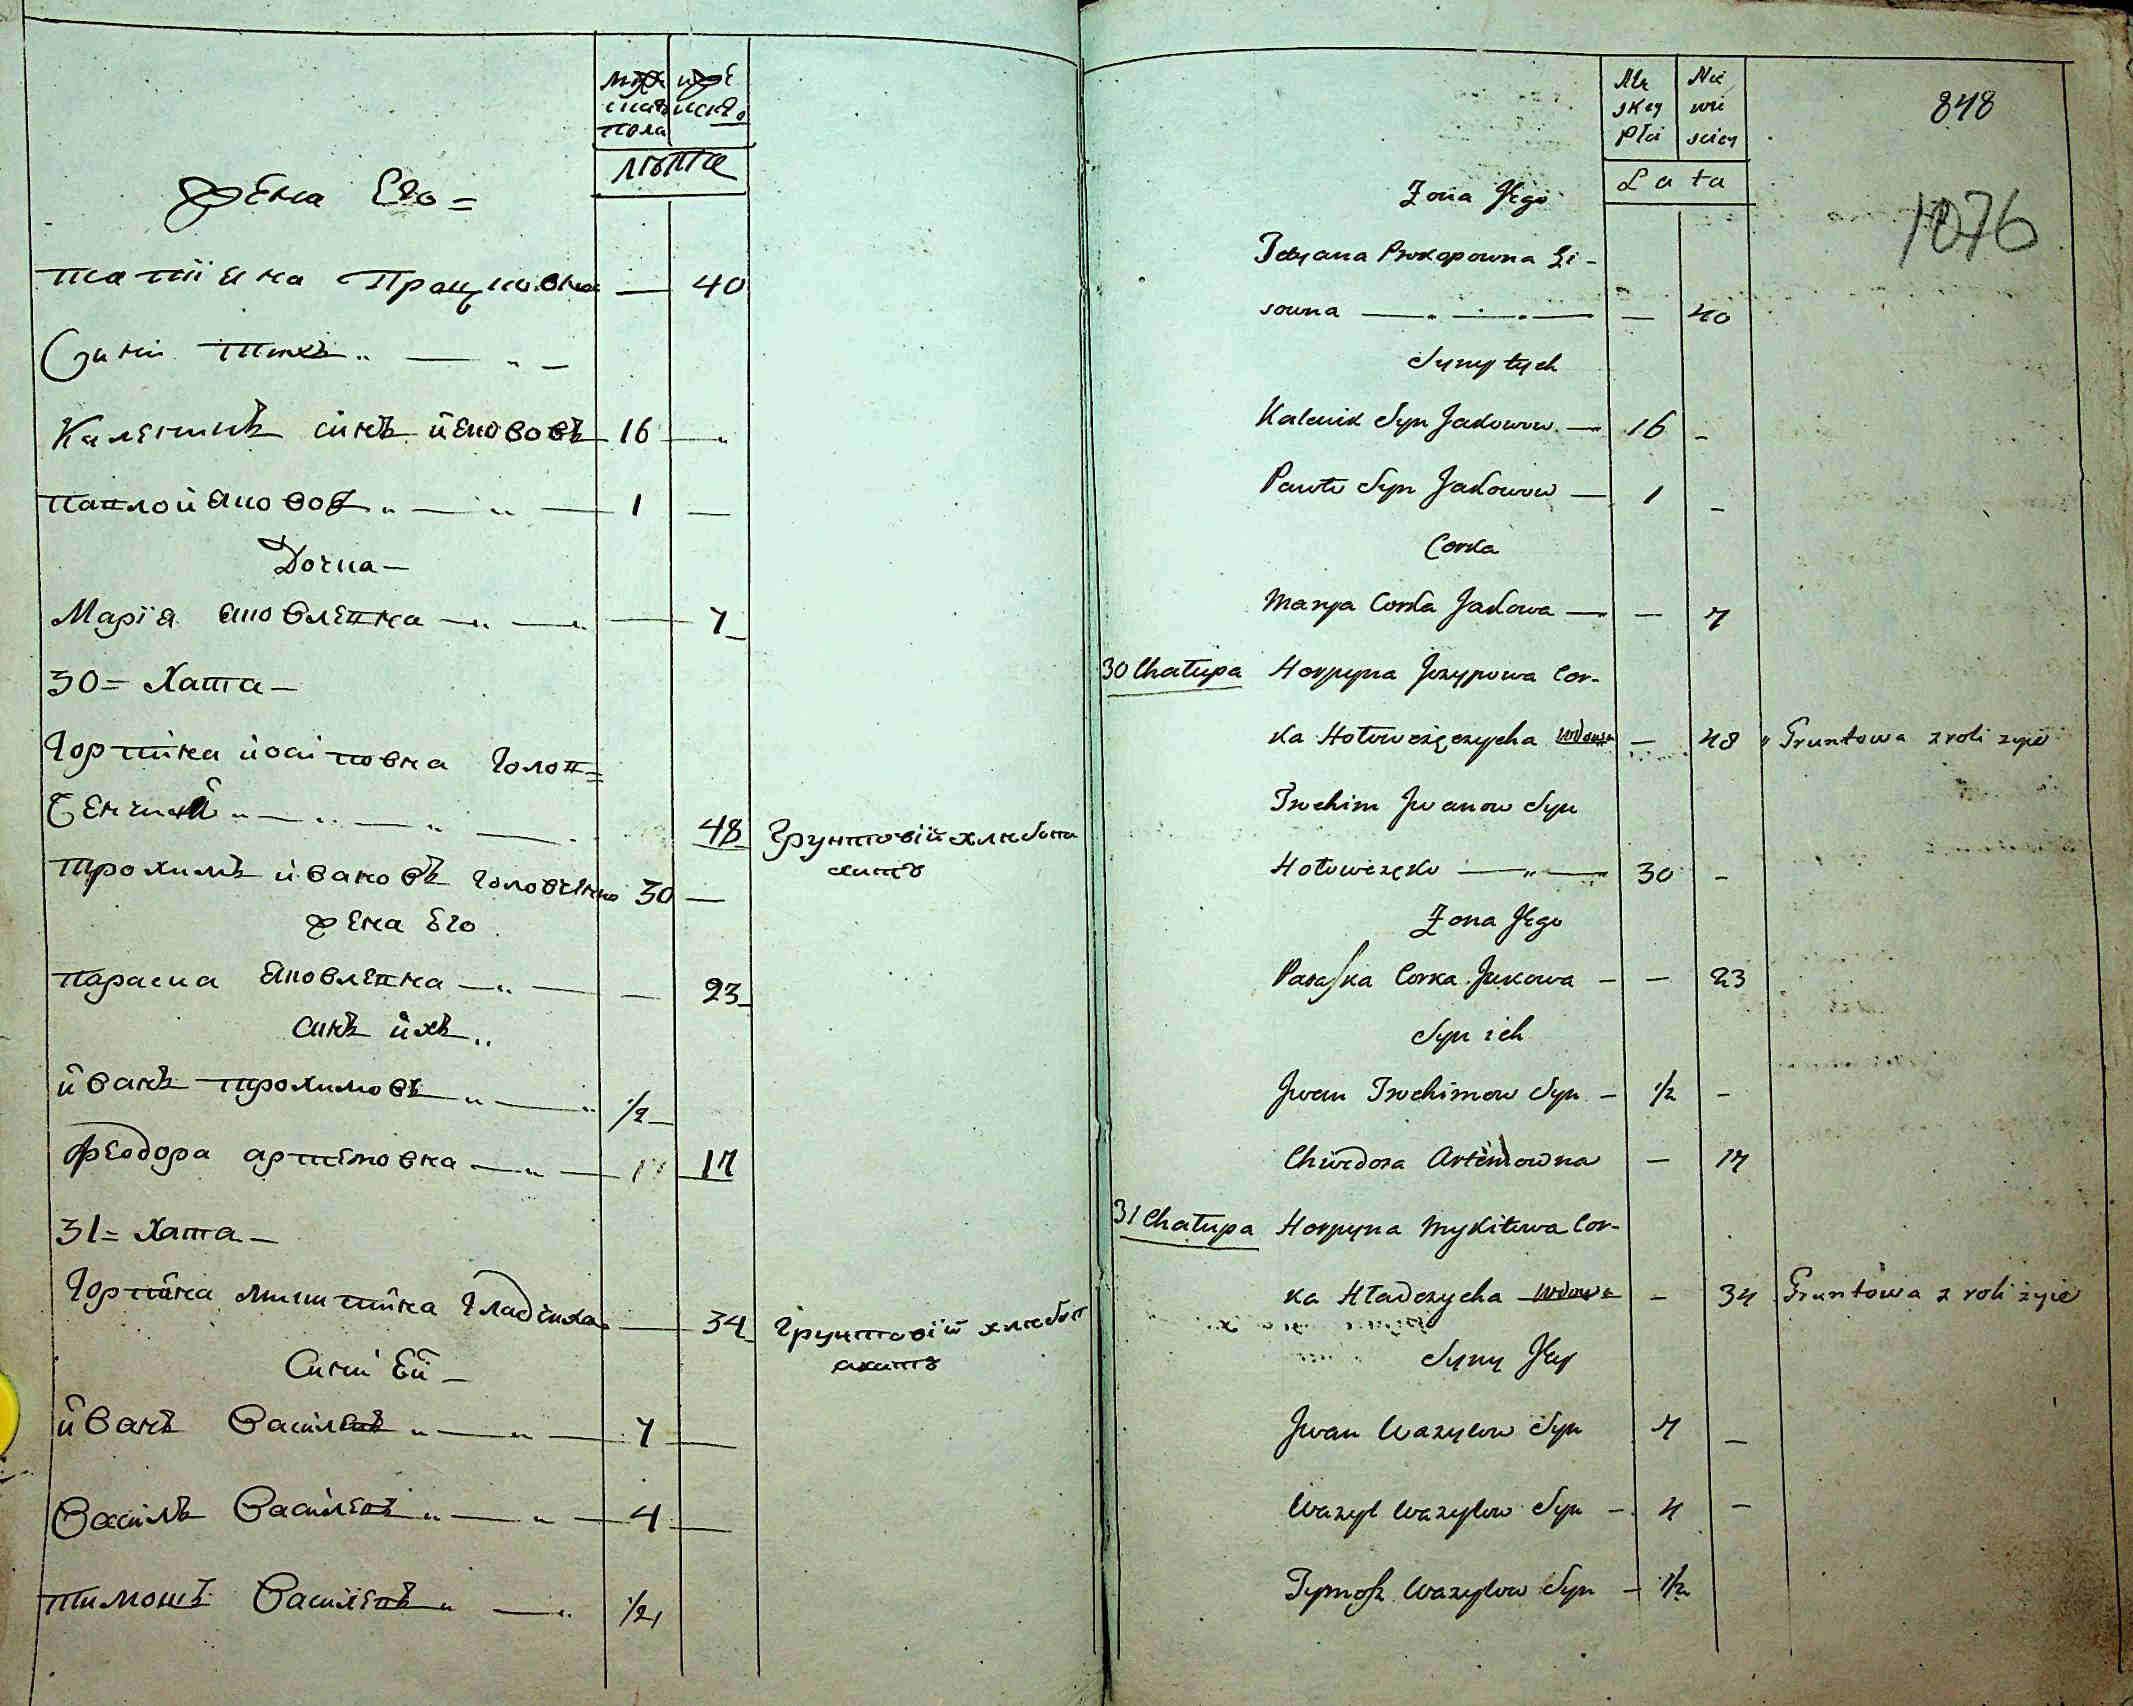 мужеска пола
женска
лѣта
жена Его =
татіяна Процковна — 40
Сини тихъ
Каленикъ синъ йяковъ 16 —
павло йяковов 1 —
Дочка —
Марія яковлевна — 7
30 = Хата —
Горпина йосиповна Голов=
ченчиха 48 Грунтовій хлѣборо
житъ
трохимъ ивановъ Головченко 30 —
жена Его
параска яковлевна — 23
синъ ихъ
иванъ трохимовъ 1/2 —
Феодора артемовна — 17
31 = Хата —
Горпина микитина Гладчиха — 34 Грунтовій хлѣбор
житъ
Сини Ей —
иванъ Василевъ 7 —
Василь Василевъ 4 —
тимошъ Василевъ 1/2
Mę skey płci
Nie wie sciey
Lata
848
1076
Zona Jego
Tatyana Prokopowna Li-
sowna — 40
Syny tych
Kalenik Syn Jakowow — 16 –
Pawło Syn Jakowow — 1 –
Corka
Marya Corka Jakowa — — 7
30 Chałupa Horpyna Jozypowa Cor-
ka Hołowczęczycha wdowa — 48 Gruntowa z roli żyie
Trochim Jwanow Syn
Hołowczęko — 30 –
Zona Jego
Paraska Corka Jakowa – — 23
Syn ich
Jwan Trochimow Syn – 1/2 –
Chwedora Artemowna — 17
31 Chałupa Horpyna Mykitowa Cor-
ka Hładczycha wdowa – 34 Gruntowa z roli żyie
Syny Jey
Jwan Wazylow Syn 7 –
Wazyl Wazylow Syn – 4 –
Tymosz Wazylow Syn – 1/2